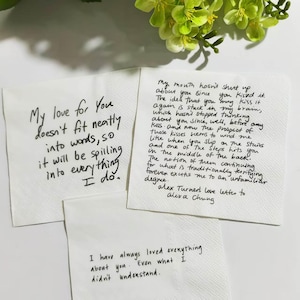 My love for You
doesn't fit neatly
into words, so
it will be spilling
into everything
I do.
My mouth hasn't shut up
about you since you kissed it
The idea that you may kiss it
again is stuck in my brain,
which hasn't stopped thinking
about you since, well, before any
kiss. And now the prospect of
those kisses seems to wind me
like when you slip on the stairs
and one of the steps hits you
in the middle of the back.
The notion of them continuing
for what is traditionally terrifying
forever excites me to an unfamiliar
degree.
Alex Turner's love letter to
Alexa Chung
I have always loved everything
about you. Even what I
didn't understand.